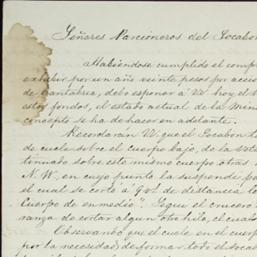 Señores Parcioneros del Socabon
Habiéndose cumplido el comp
exhibir por un año veinte pesos por acci
de Cantabria, debo esponer á VV. hoy el
estos fondos, el estado actual de la Min
concepto se ha de hacer en adelante.
Recordarán VV. que el Socabon
de cuele sobre el cuerpo bajo, de la
tinuado sobre este mismo cuerpo otras
N. W. en cuyo punto la suspendí po
el cual se cortó á 9 v.s de distancia
Cuerpo de enmedio". Seguí el crucero
ranza de cortar algun otro hilo, el cual
Observando que el cuele en el cuerp
por la necesidad de formar todo el soca